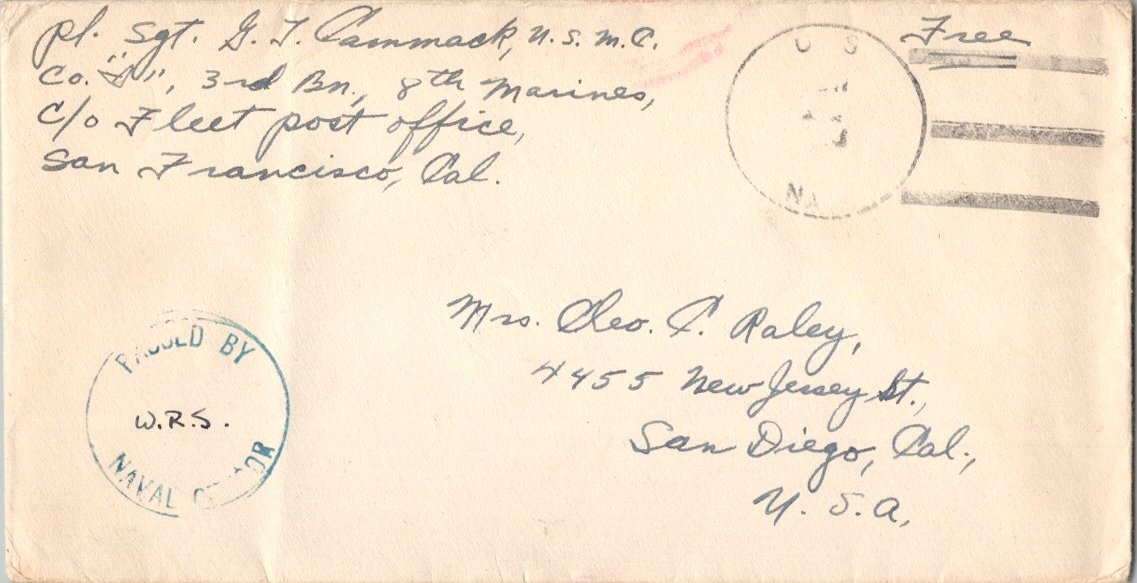 Pl. Sgt. G. T. Cammack, U.S.M.C.
Co. " ", 3rd Bn., 8th Marines,
c/o Fleet post office,
San Francisco, Cal.
Free
U S
NA
Mrs. Cleo. C. Raley,
4455 New Jersey St.,
San Diego, Cal.,
U.S.A.
PASSED BY
W.R.S.
NAVAL CENSOR